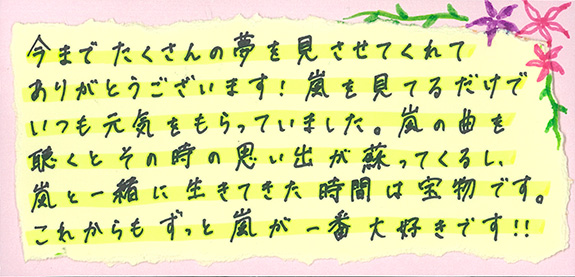 今までたくさんの夢を見させてくれて
ありがとうございます!嵐を見てるだけで
いつも元気をもらっていました。嵐の曲を
聴くとその時の思い出が蘇ってくるし、
嵐と一緒に生きてきた時間は宝物です。
これからもずっと嵐が一番大好きです!!